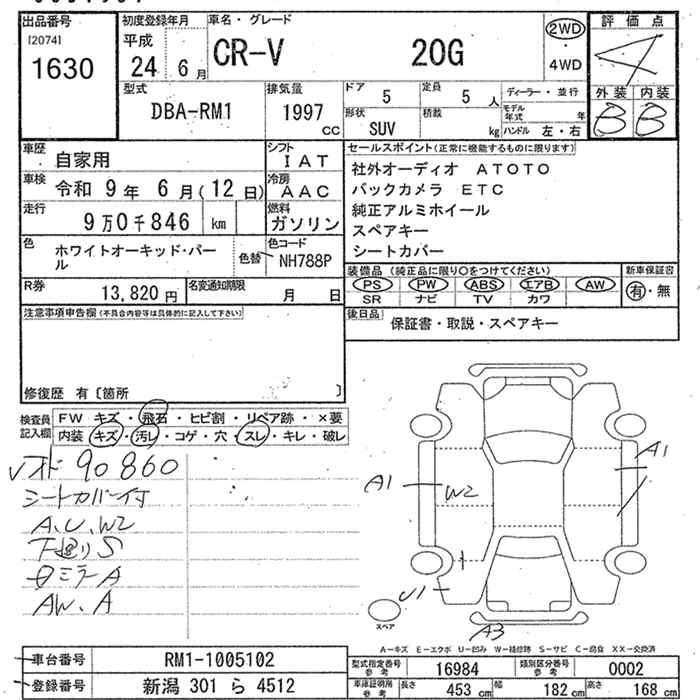 出品番号
[2074]
1630
初度登録年月
平成
24 6 月
車名・グレード
CR-V 20G
2WD
・
4WD
評価点
4
外装 内装
B B
型式
DBA-RM1
排気量
1997
CC
ドア
5
定員
5 人
形状
SUV
積載
kg
ディーラー・並行
モデル年式 年
ハンドル 左・右
車歴
自家用
シフト
IAT
車検
令和 9年 6月(12日)
冷房
AAC
走行
9万0千846 km
燃料
ガソリン
色
ホワイトオーキッド・パール
色替
色コード
NH788P
R券
13,820円
名変通知期限
月 日
セールスポイント(正常に機能するものに限ります)
社外オーディオ ATOTO
バックカメラ ETC
純正アルミホイール
スペアキー
シートカバー
装備品(純正品に限り○をつけてください)
PS PW ABS エアB AW
SR ナビ TV カワ
新車保証書
有・無
後日品
保証書・取説・スペアキー
注意事項申告欄(不具合内容等は具体的に記入して下さい)
修復歴 有[箇所 ]
検査員記入欄
FW キズ・飛石・ヒビ割・リペア跡・×要
内装 キズ・汚レ・コゲ・穴・スレ・キレ・破レ
90860
シートカバー付
A、U、W2
下廻りS
AW、A
A1
W2
A1
U1
A3
スペア
A-キズ E-エクボ U-凹み W-補修跡 S-サビ C-腐食 XX-交換済
車台番号
RM1-1005102
登録番号
新潟 301 ら 4512
型式指定番号
参考
16984
類別区分番号
参考
0002
車庫証明用
参考
長さ
453 cm
幅
182 cm
高さ
168 cm